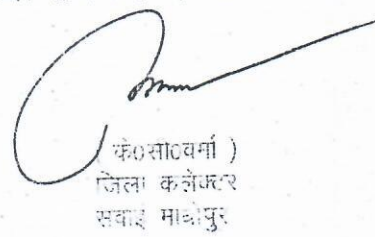 ( के०सी०वर्मा )
जिला कलेक्टर
सवाई माधोपुर